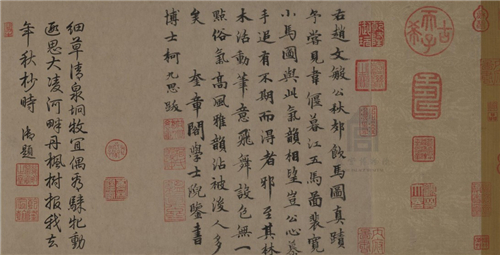 右趙文敏公秋郊飲馬圖真蹟
予嘗見韋偃暮江五馬圖裴寬
小馬圖與此氣韻相望豈公心慕
手追有不期而得者邪至其林
木活動筆意飛舞設色無一
點俗氣高風雅韻沾被後人多
矣 奎章閣學士院鑒書
博士柯九思跋
細草清泉坰牧宜偶看騋牝動
遐思大凌河畔丹楓樹報我去
年秋杪時 御題